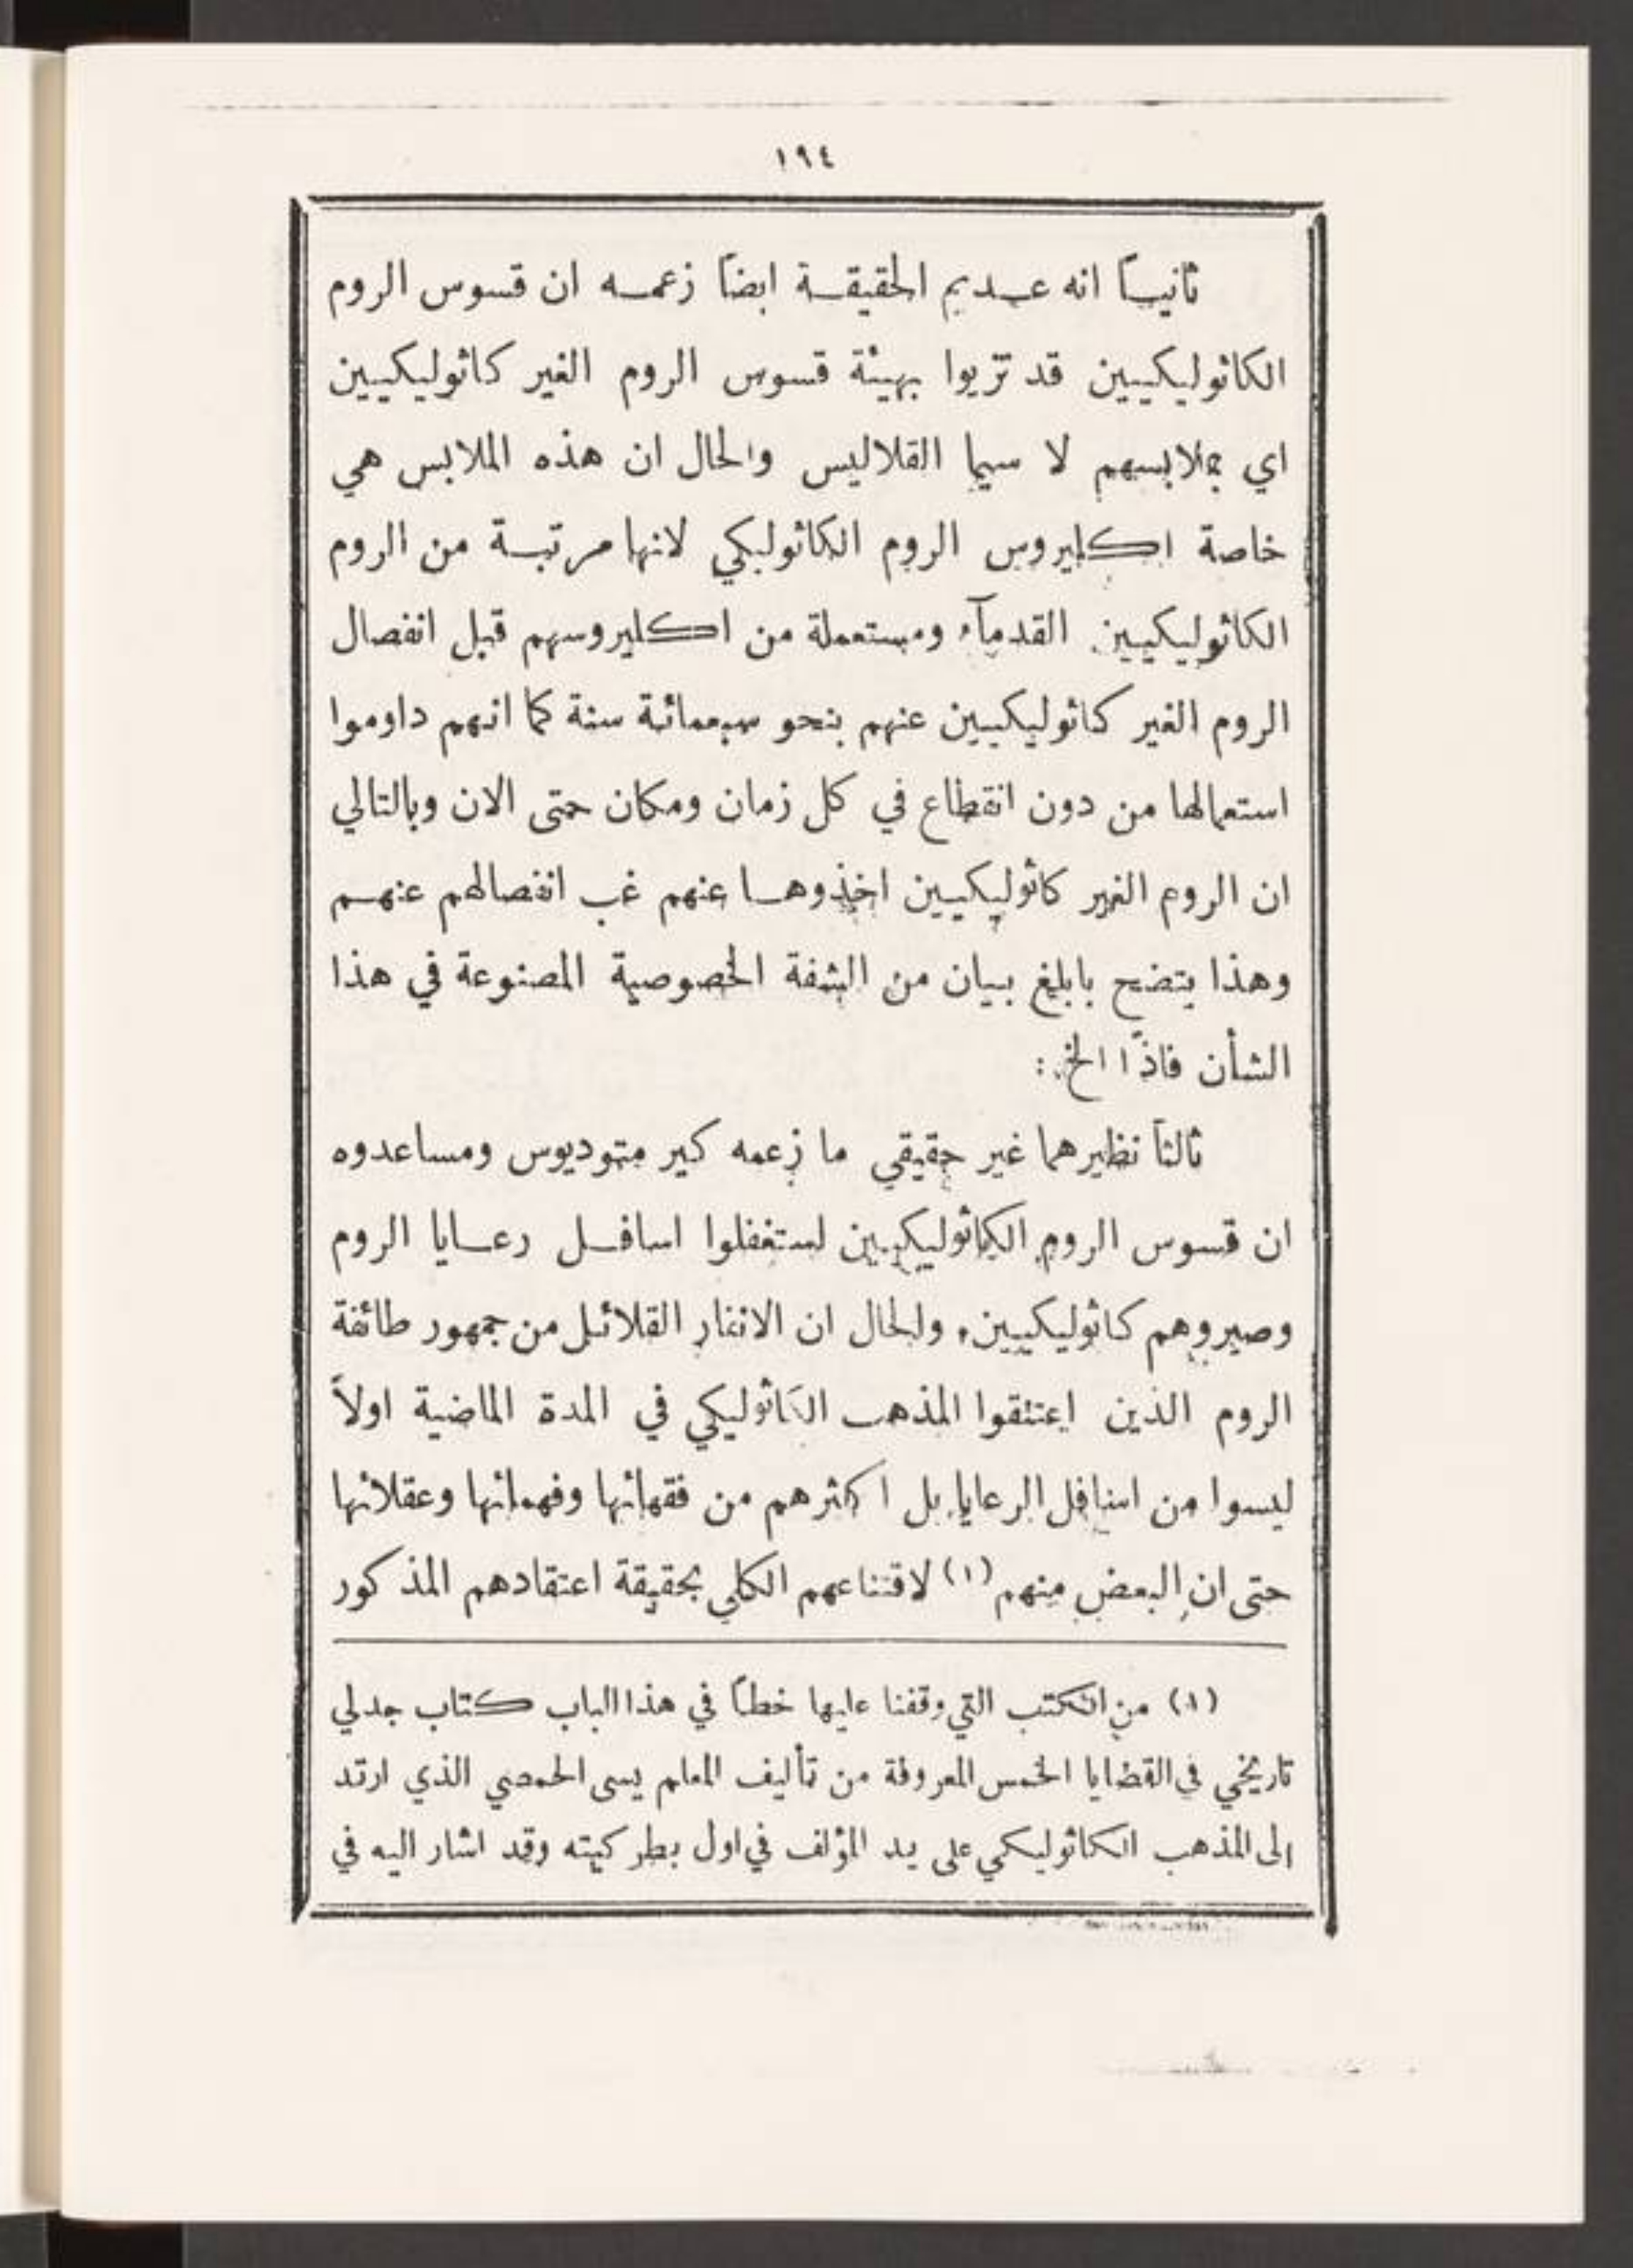 ١٩٤
ثانيـاً انه عـديم الحقيقـة ايضاً زعمـه ان قسوس الروم
الكاثوليكيين قد تزيوا بهيئة قسوس الروم الغير كاثوليكيين
اي بملابسهم لا سيما القلاليس والحال ان هذه الملابس هي
خاصة اكليروس الروم الكاثوليكي لانها مرتبـة من الروم
الكاثوليكيين القدمآء ومستعملة من اكليروسهم قبل انفصال
الروم الغير كاثوليكيين عنهم بنحو سبعمائة سنة كما انهم داوموا
استعمالها من دون انقطاع في كل زمان ومكان حتى الان وبالتالي
ان الروم الغير كاثوليكيين اخذوهـا عنهم غب انفصالهم عنهـم
وهذا يتضح بابلغ بيان من الشقة الخصوصية المصنوعة في هذا
الشأن فاذًا الخ :
ثالثاً نظيرهما غير حقيقي ما زعمه كير متوديوس ومساعدوه
ان قسوس الروم الكاثوليكيين استغفلوا اسافـل رعـايا الروم
وصيروهم كاثوليكيين، والحال ان الانفار القلائل من جمهور طائفة
الروم الذين اعتنقوا المذهب الكاثوليكي في المدة الماضية اولاً
ليسوا من اسافل الرعايا بل اكثرهم من فقهائها وفهمائها وعقلائها
حتى ان البعض منهم (١) لاقتناعهم الكلي بحقيقة اعتقادهم المذكور
(١) من الكتب التي وقفنا عليها خطاً في هذا الباب كتاب جدلي
تاريخي في القضايا الخمس المعروفة من تأليف المعلم يسى الحمصي الذي ارتد
الى المذهب الكاثوليكي على يد المؤلف في اول بطركيته وقد اشار اليه في